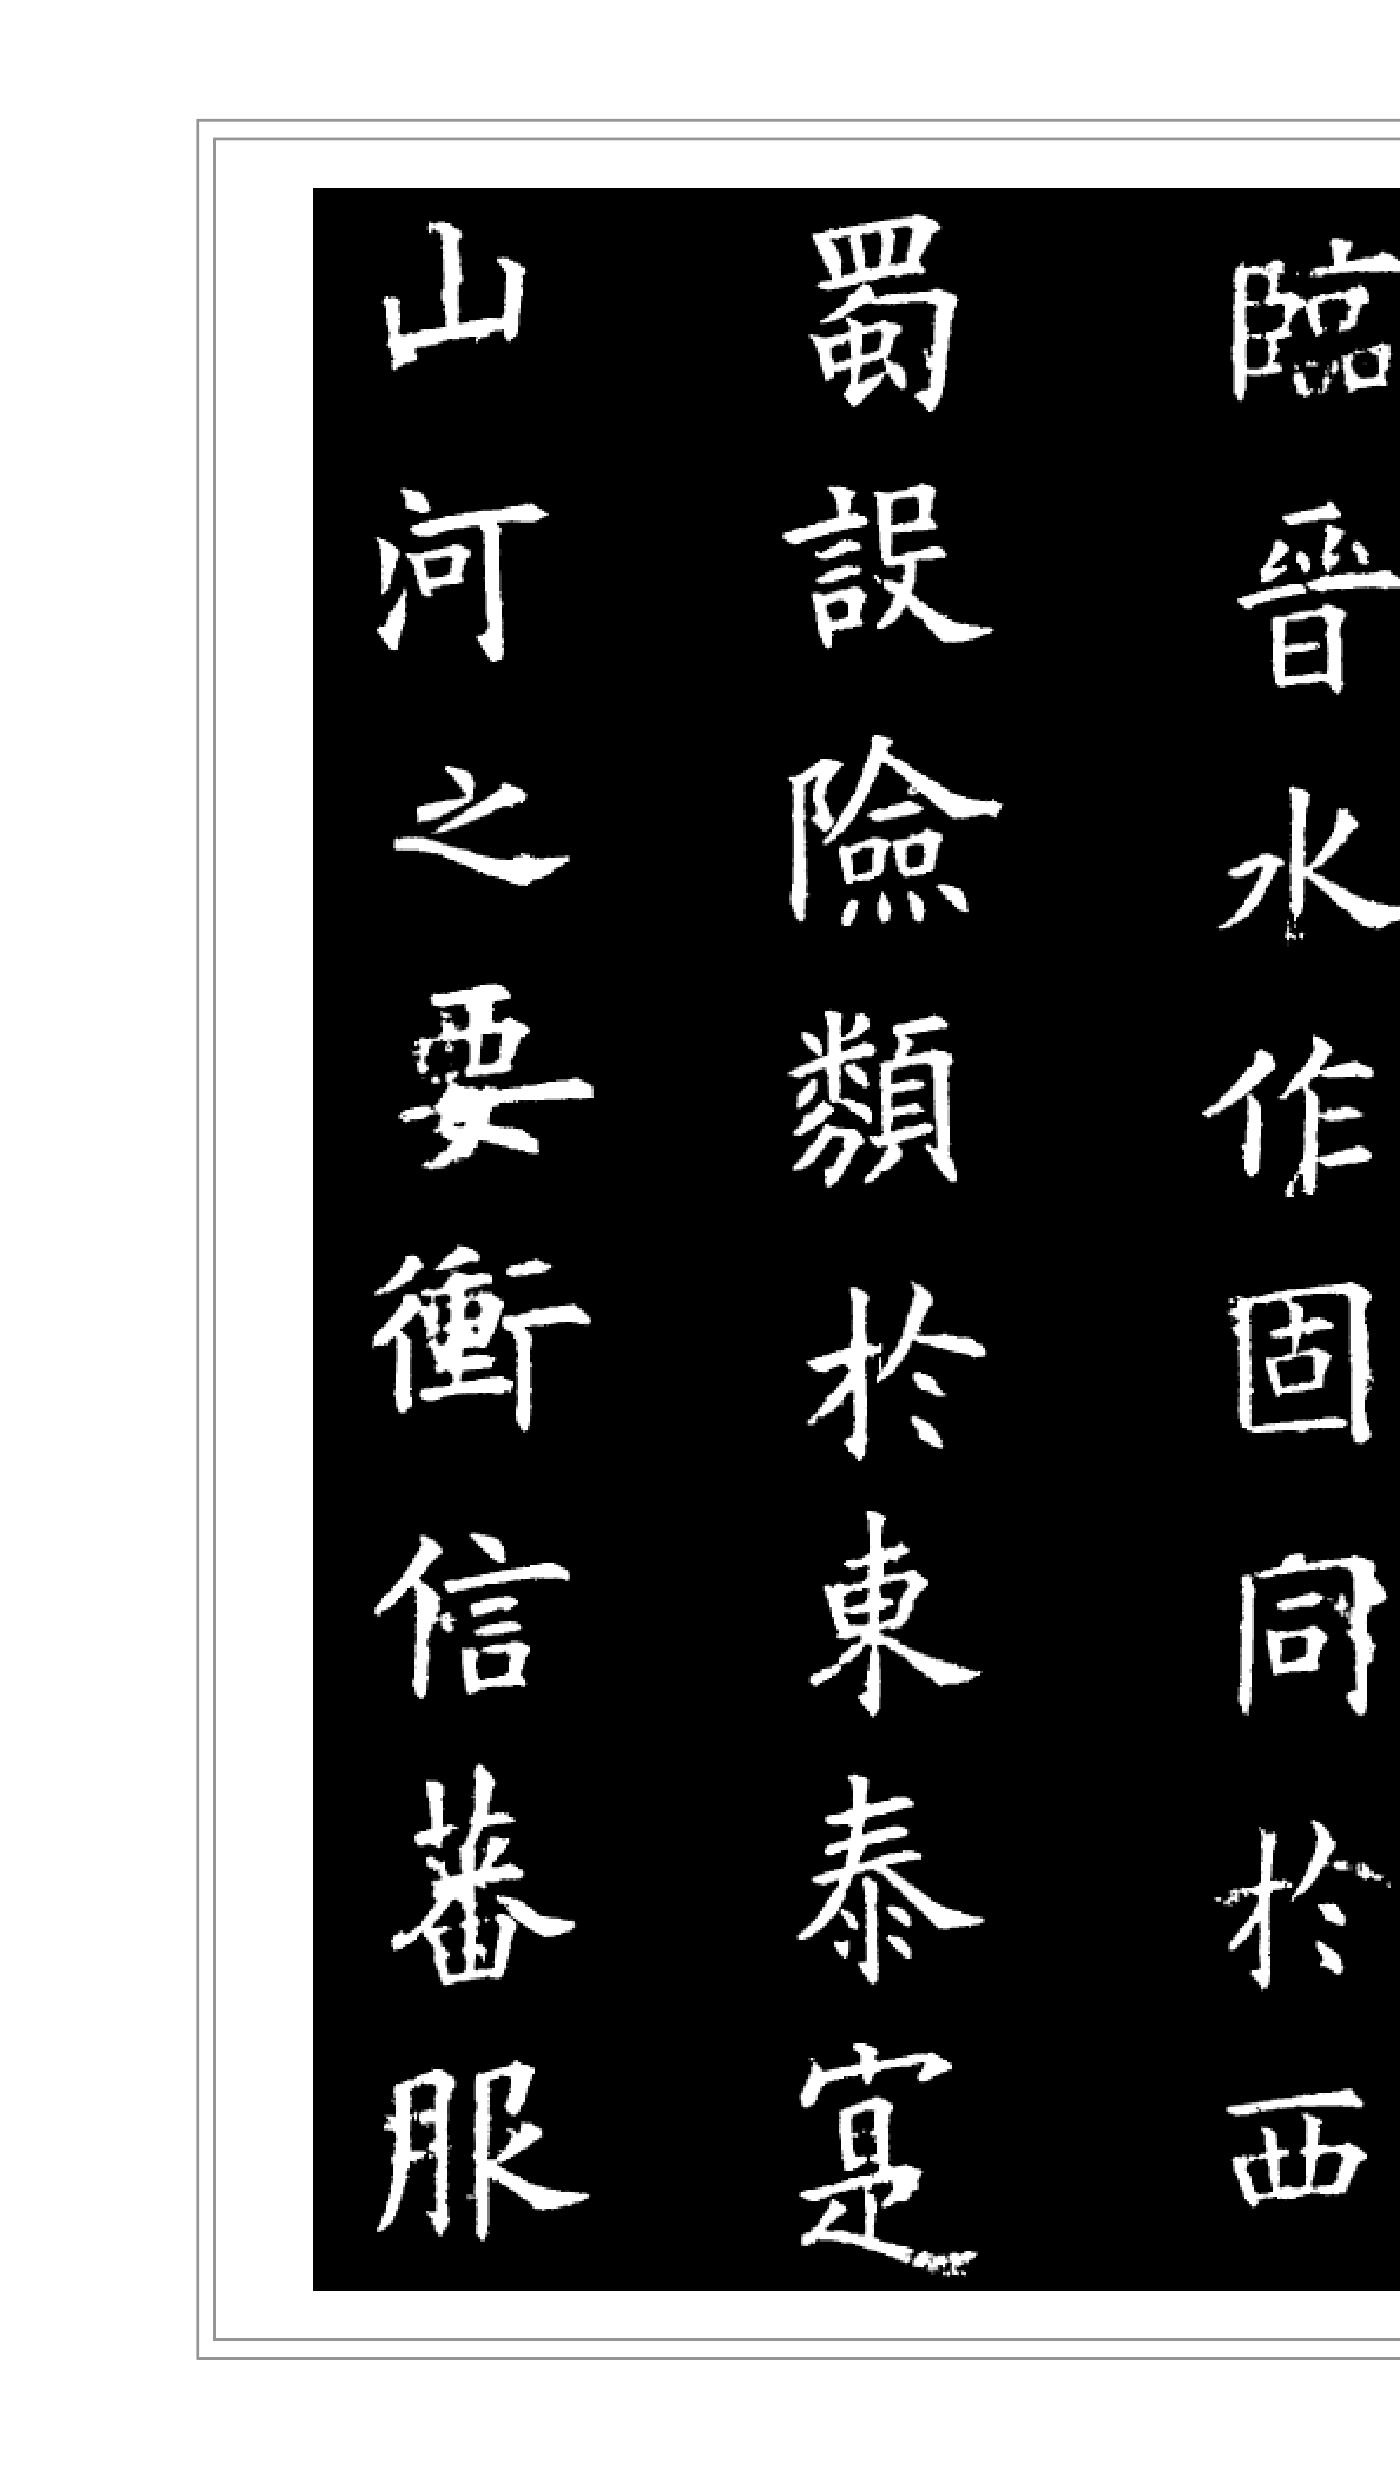 臨晉水作固同於西
蜀設險類於東泰寔
山河之要衝信蕃服